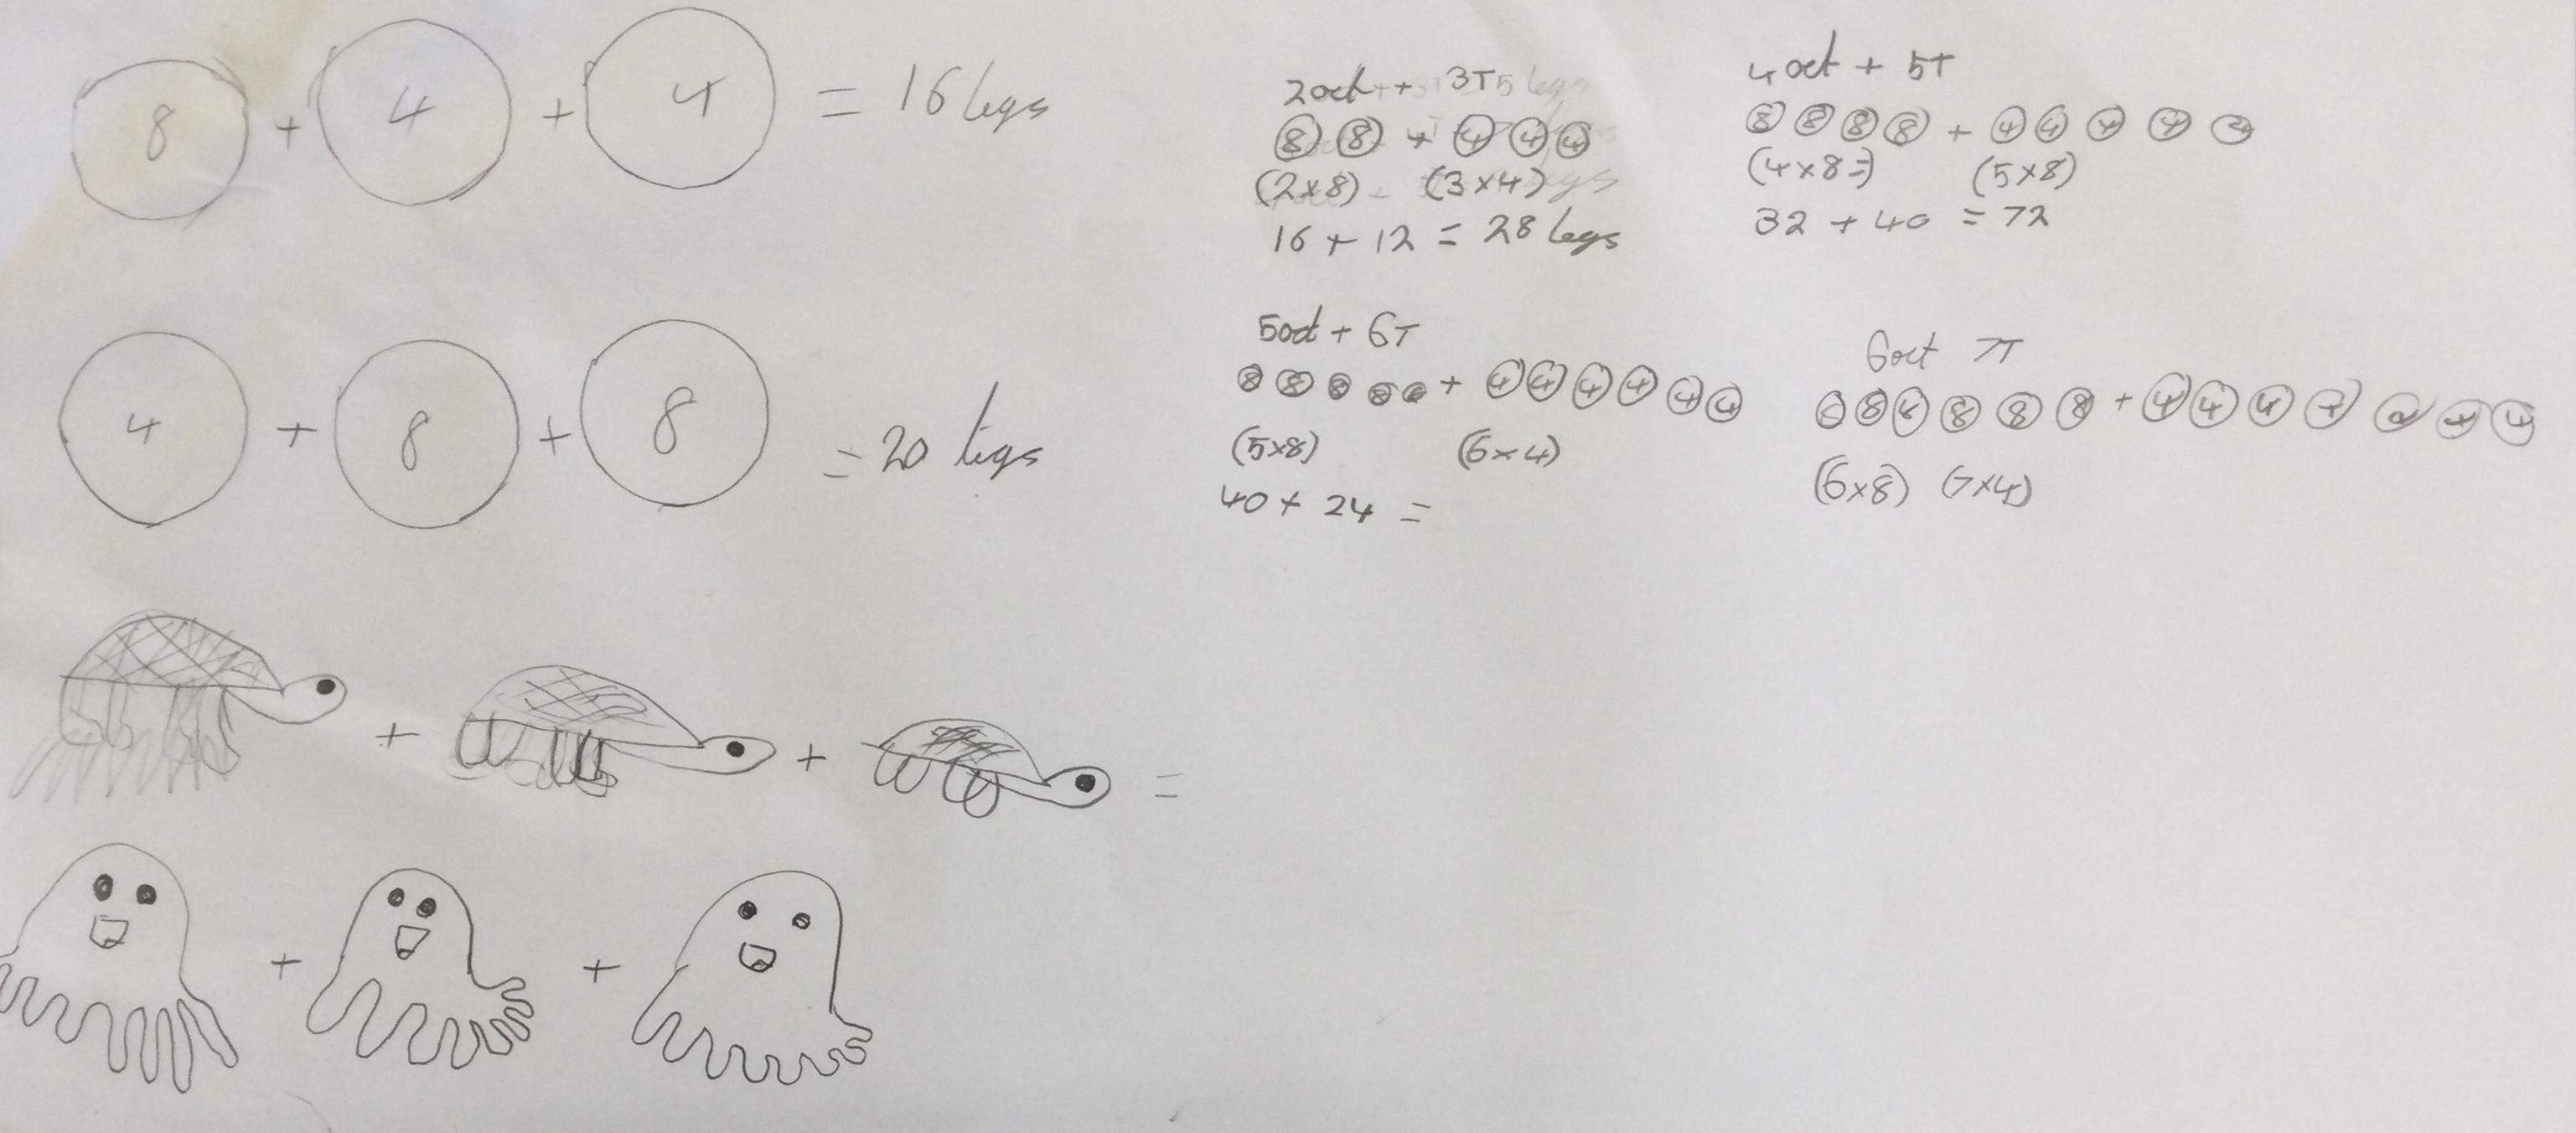 8 + 4 + 4 = 16 legs
4 + 8 + 8 = 20 legs
+ + =
+ +
2oct + 3T
8 8 + 4 4 4
(2x8) (3x4)
16 + 12 = 28 legs
4 oct + 5T
8 8 8 8 + 4 4 4 4 4
(4x8=) (5x8)
32 + 40 = 72
5oct + 6T
8 8 8 8 8 + 4 4 4 4 4 4
(5x8) (6x4)
40 + 24 =
6oct 7T
8 8 8 8 8 8 + 4 4 4 4 4 4 4
(6x8) (7x4)